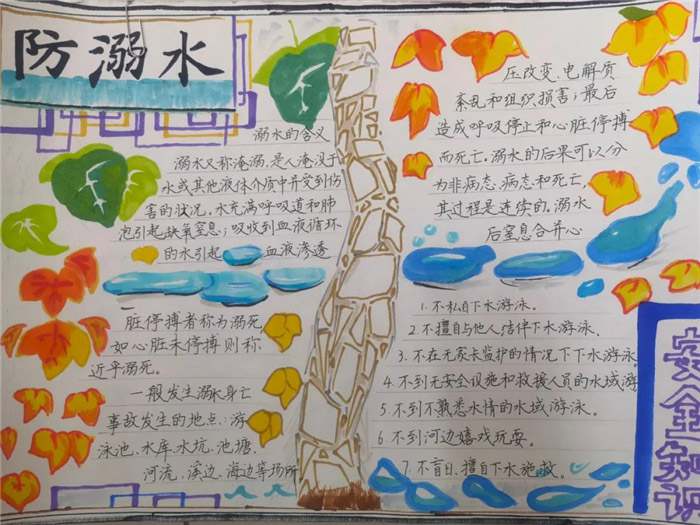 防溺水
溺水的含义
溺水又称淹溺,是人淹没于
水或其他液体介质中并受到伤
害的状况,水充满呼吸道和肺
泡引起缺氧窒息;吸收到血液循环
的水引起 血液渗透
压改变、电解质
紊乱和组织损害;最后
造成呼吸停止和心脏停搏
而死亡。溺水的后果可以分
为非病态、病态和死亡,
其过程是连续的,溺水
后窒息合并心
脏停搏者称为溺死,
如心脏未停搏则称
近乎溺死。
一般发生溺水身亡
事故发生的地点:游
泳池、水库水坑、池塘、
河流、溪边、海边等场所
1.不私自下水游泳。
2.不擅自与他人结伴下水游泳。
3.不在无家长监护的情况下下水游泳。
4.不到无安全设施和救援人员的水域游
5.不到不熟悉水情的水域游泳。
6.不到河边嬉戏玩耍。
7.不盲目、擅自下水施救。
安全知识